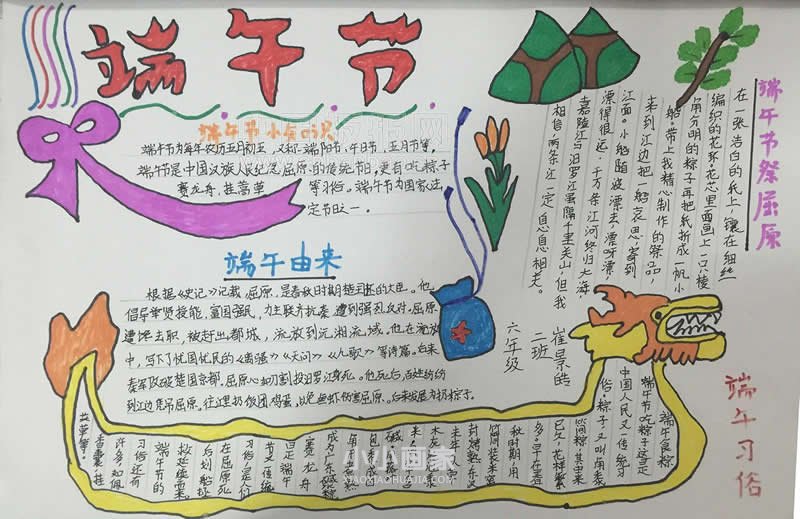 端午节
端午节小知识
端午节为每年农历五月初五,又称端阳节、午日节、五月节等,
端午节是中国汉族人民纪念屈原的传统节日,更有吃粽子
赛龙舟、挂菖草
等习俗。端午节为国家法
定节日之一。
端午由来
根据《史记》记载,屈原,是春秋时期楚王的大臣。他
倡导举贤授能,富国强民,力主联齐抗秦,遭到强烈反对,屈原
遭馋去职,被赶出都城,流放到沅湘流域。他在流放
中,写下了忧国忧民的《离骚》《天问》《九歌》等诗篇。后来
秦军攻破楚国京都,屈原心如刀割投汨罗江身死。他死后,百姓纷纷
到江边凭吊屈原。
端午节祭屈原
在一张洁白的纸上,镶在细丝
编织的花环,花芯里面画上一只棱
角分明的粽子再把纸折成一帆小
船,带上我精心制作的祭品,
来到江边把一船哀思,寄到
江面。小船随波漂去,漂呀漂,
漂得很远,千万条江河终归大海,
嘉陵江与汨罗江虽隔千里关山,但我
相信,两条江一定息息相关。
六年级
二班
崔景皓
端午习俗
端午食粽
端午节吃粽子这是
中国人民又一传统习
俗。粽子,又叫角黍
筒粽其由来
已久,花样繁
多。早在
秋时期,用
赛龙舟
是端午
节又一传统
习俗
许多,如佩
香囊,挂
艾草等。
小小画家
XIAOXIAOHUAJIA.COM